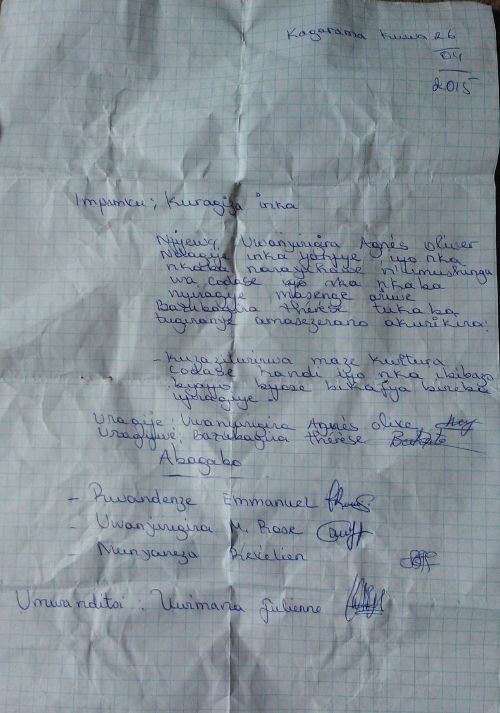 Kagarama kuwa 26
04
2015
Impamvu; Kuragiza inka
Njyewe, Uwanyirigira Agnès oliver
Ndagije inka yanjye iyo nka
nkaba narayihawe n'umushinga
wa codase iyo nka nkaba
nyiragije masenge ariwe
Barubagira thérèse tukaba
tugiranye amasezerano akurikira:
- kuzaziturirwa maze kwitura
codase kandi iyo nka ibibazo
byayo byose bikafya bireba
uyiragiye
Uragije: Uwanyirigira Agnès olive,
Uragijwe; Barubagira thérèse
Abagabo
- Rwandenze Emmanuel
- Uwanyirigira M. Rose
- Munyaneza Revelien
Umwanditsi: Uwimana Julienne